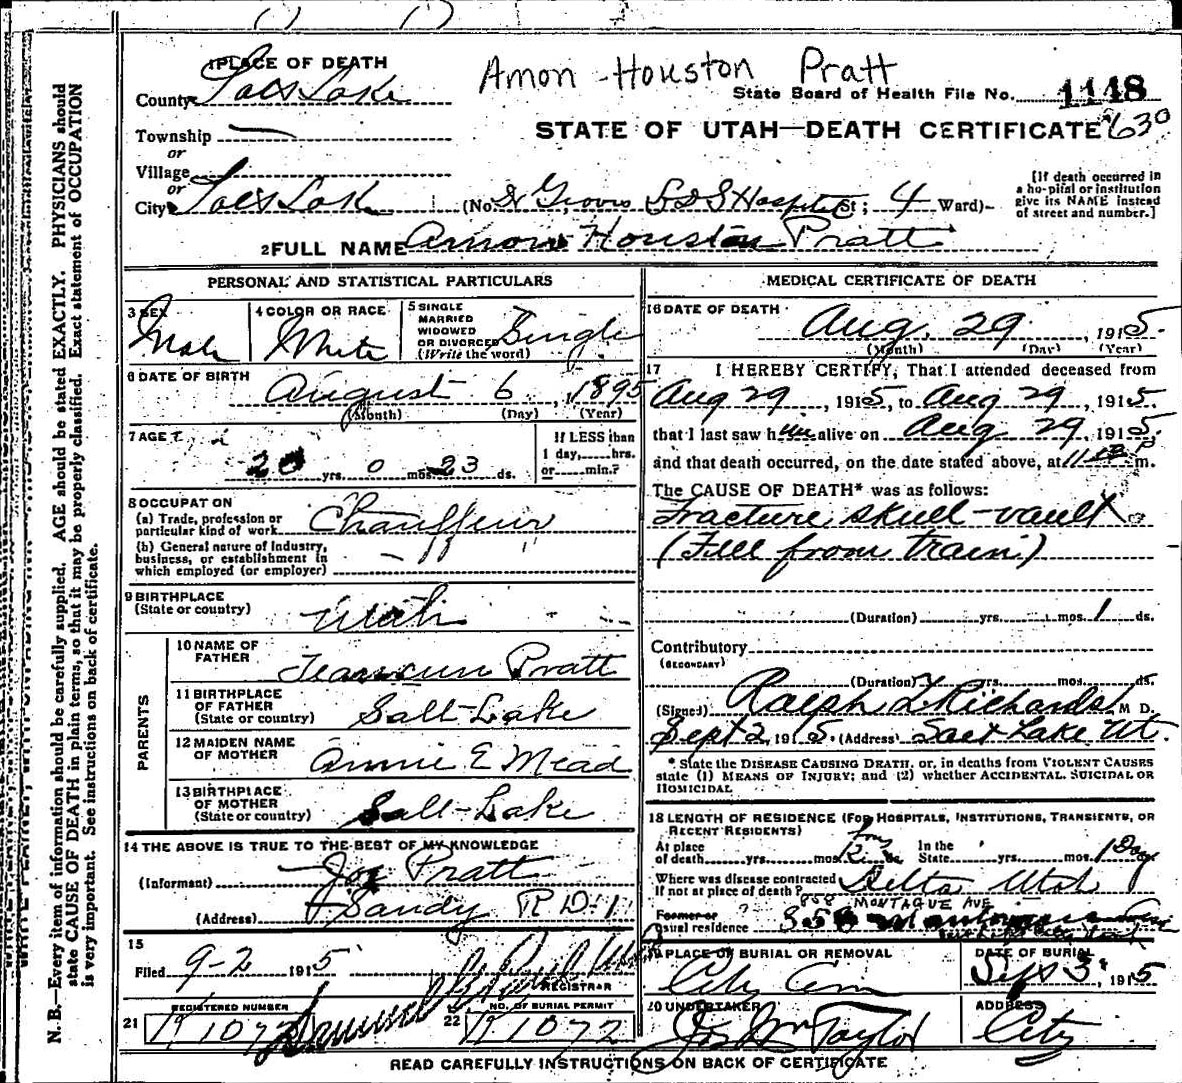 Amon Houston Pratt
1 PLACE OF DEATH
County Salt Lake
State Board of Health File No. 1148
Township
STATE OF UTAH—DEATH CERTIFICATE 630
or
Village
or
City Salt Lake (No. Dr Groves L D S Hospital St; 4 Ward)
[If death occurred in
a hospital or institution
give its NAME instead
of street and number.]
2 FULL NAME Amon Houston Pratt
PERSONAL AND STATISTICAL PARTICULARS
3 SEX
Male
4 COLOR OR RACE
White
5 SINGLE
MARRIED
WIDOWED
OR DIVORCED
(Write the word)
Single
6 DATE OF BIRTH
August 6, 1895
(Month) (Day) (Year)
7 AGE
20 yrs. 0 mos. 23 ds.
If LESS than
1 day, hrs.
or min.?
8 OCCUPATION
(a) Trade, profession or
particular kind of work Chauffeur
(b) General nature of industry,
business, or establishment in
which employed (or employer)
9 BIRTHPLACE
(State or country) Utah
PARENTS
10 NAME OF
FATHER Pratt
11 BIRTHPLACE
OF FATHER
(State or country) Salt Lake
12 MAIDEN NAME
OF MOTHER Annie E Mead
13 BIRTHPLACE
OF MOTHER
(State or country) Salt Lake
14 THE ABOVE IS TRUE TO THE BEST OF MY KNOWLEDGE
(Informant) Jos Pratt
(Address) Sandy R D 1
15
Filed 9-2 1915
REGISTRAR
REGISTERED NUMBER
21 K 1072
NO. OF BURIAL PERMIT
22 K 1072
MEDICAL CERTIFICATE OF DEATH
16 DATE OF DEATH
Aug. 29, 1915.
(Month) (Day) (Year)
17 I HEREBY CERTIFY, That I attended deceased from
Aug 29, 1915, to Aug 29, 1915.
that I last saw him alive on Aug 29, 1915.
and that death occurred, on the date stated above, at P m.
The CAUSE OF DEATH* was as follows:
Fracture skull-vault
(Fell from train)
(Duration) yrs. mos. 1 ds.
Contributory
(SECONDARY)
(Duration) yrs. mos. ds.
(Signed) Ralph T Richards M D.
Sept 2, 1915. (Address) Salt Lake Ut.
* State the DISEASE CAUSING DEATH, or, in deaths from VIOLENT CAUSES
state (1) MEANS OF INJURY; and (2) whether ACCIDENTAL, SUICIDAL OR
HOMICIDAL
18 LENGTH OF RESIDENCE (FOR HOSPITALS, INSTITUTIONS, TRANSIENTS, OR
RECENT RESIDENTS)
At place
of death yrs. mos.
In the
State yrs. mos. 1 Day
Where was disease contracted
If not at place of death? Delta Utah
858 MONTAGUE AVE
Former or
usual residence
19 PLACE OF BURIAL OR REMOVAL
City Cem
DATE OF BURIAL
Sept 3, 1915
20 UNDERTAKER
Jos Wm Taylor
ADDRESS
City
READ CAREFULLY INSTRUCTIONS ON BACK OF CERTIFICATE
N. B.—Every item of information should be carefully supplied. AGE should be stated EXACTLY. PHYSICIANS should
state CAUSE OF DEATH in plain terms, so that it may be properly classified. Exact statement of OCCUPATION
is very important. See instructions on back of certificate.